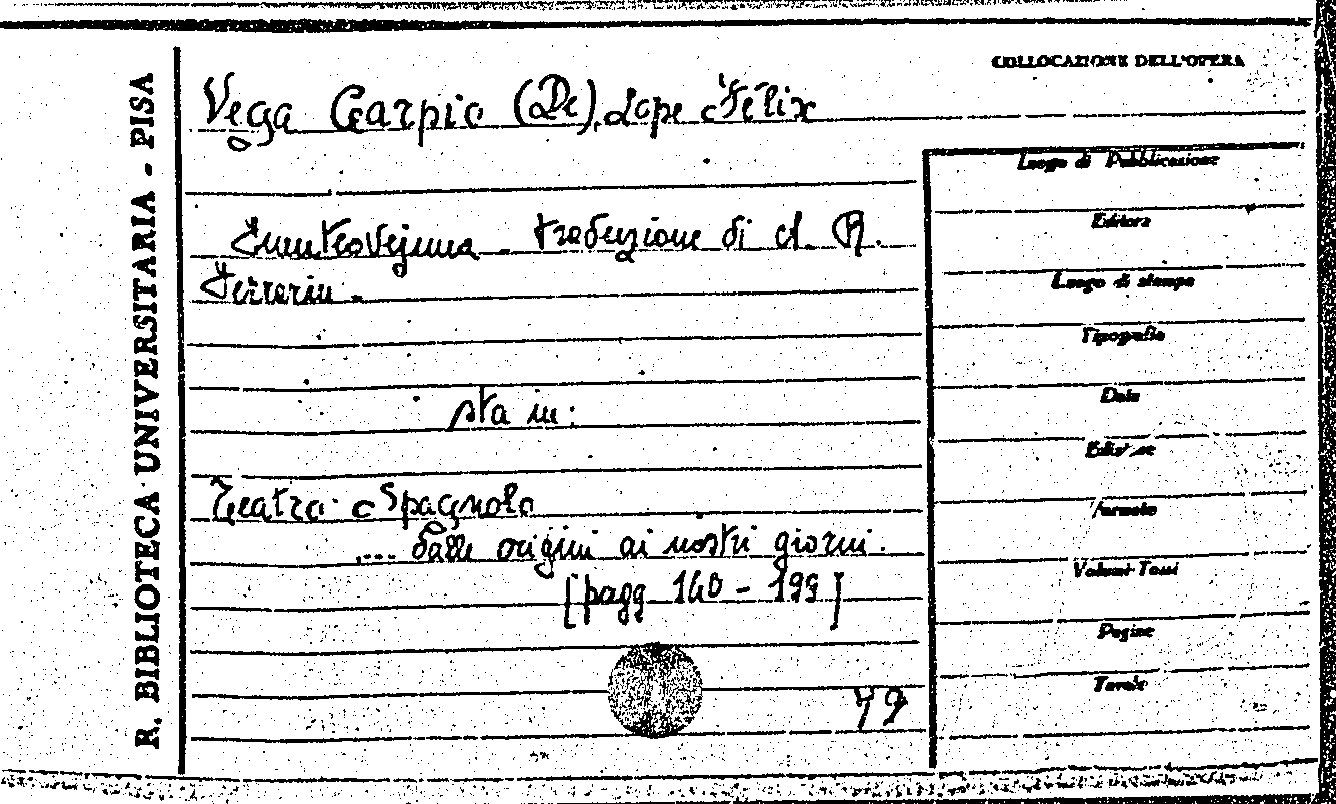 R. BIBLIOTECA UNIVERSITARIA - PISA
COLLOCAZIONE DELL'OPERA
Vega Carpio (De), Lope Félix
Fuenteovejuna - traduzione di A. R.
Ferrarin -
sta in:
Teatro Spagnolo
.... dalle origini ai nostri giorni.
[pagg 140 - 199]
79
Luogo di Pubblicazione
Editore
Luogo di stampa
Tipografia
Data
Edizione
Formato
Volumi-Tomi
Pagine
Tavole